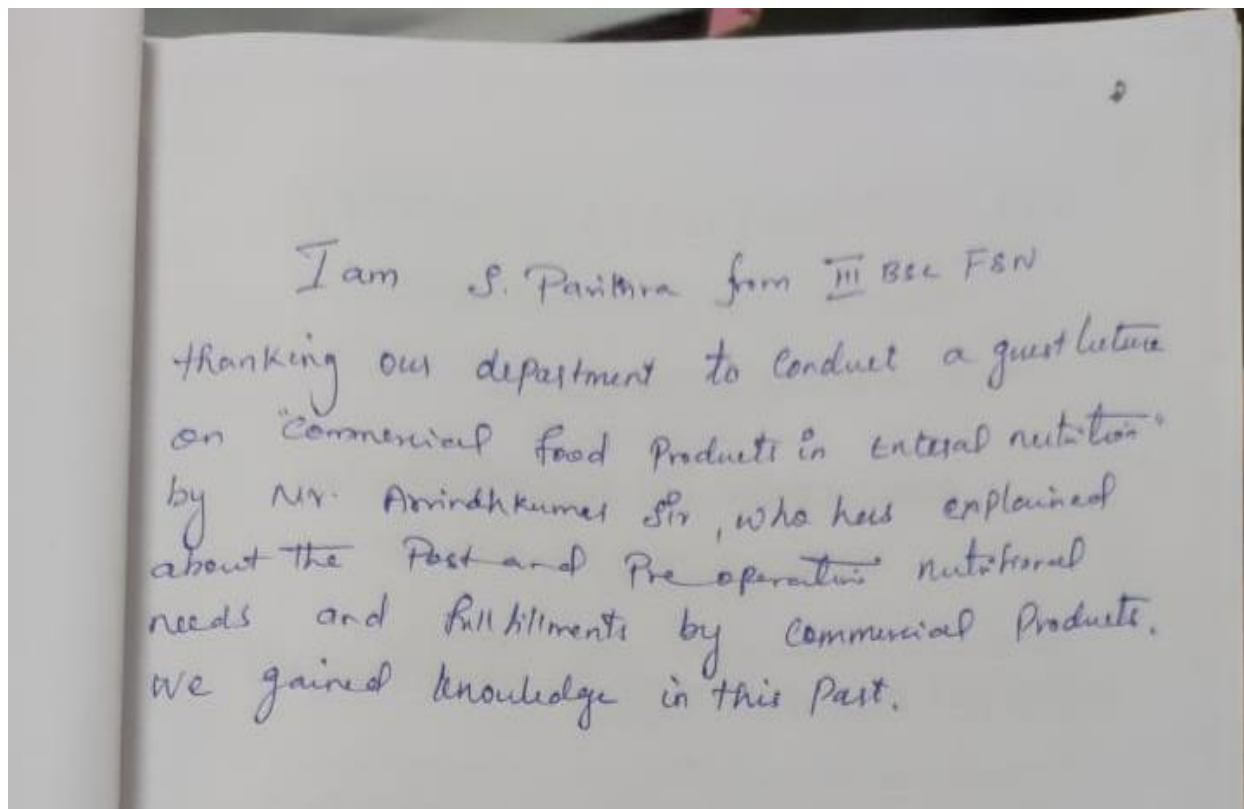 I am S. Pavithra from III BSc FSN
thanking our department to Conduct a guest lecture
on "Commercial food Products in Enteral nutrition"
by Mr. Arvindhkumar Sir, who has explained
about the Post and Pre operative nutritional
needs and fullfillments by Commercial Products.
We gained knowledge in this Part.